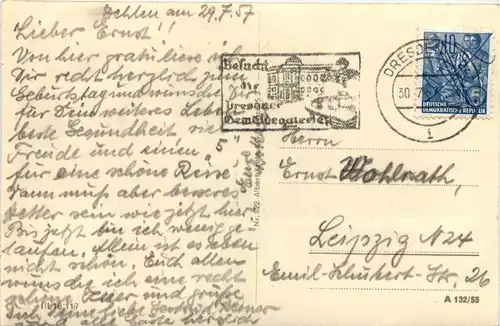 am 29.7.57
Lieber Ernst!
Von hier gratuliere ich
Dir recht herzlich zum
Geburtstag und wünsche Dir
für Dein weiteres Leben
beste Gesundheit viel
Freude und einen „5“
für eine schöne Reise
Dann muß aber besseres
Wetter sein wie jetzt hier
Bis jetzt bin ich wenig ge-
laufen. Allein ist es eben
nicht schön. Euch allen
wünsche ich eine recht
und grüße
alle
Besucht
die
Dresdner
Gemäldegalerie
DRESDEN
30.7.
i
10
DEUTSCHE
DEMOKRATISCHE REPUBLIK
Herrn
Ernst Wohlrath,
Leipzig N24
Emil-Schubert-Str. 26
A 132/55